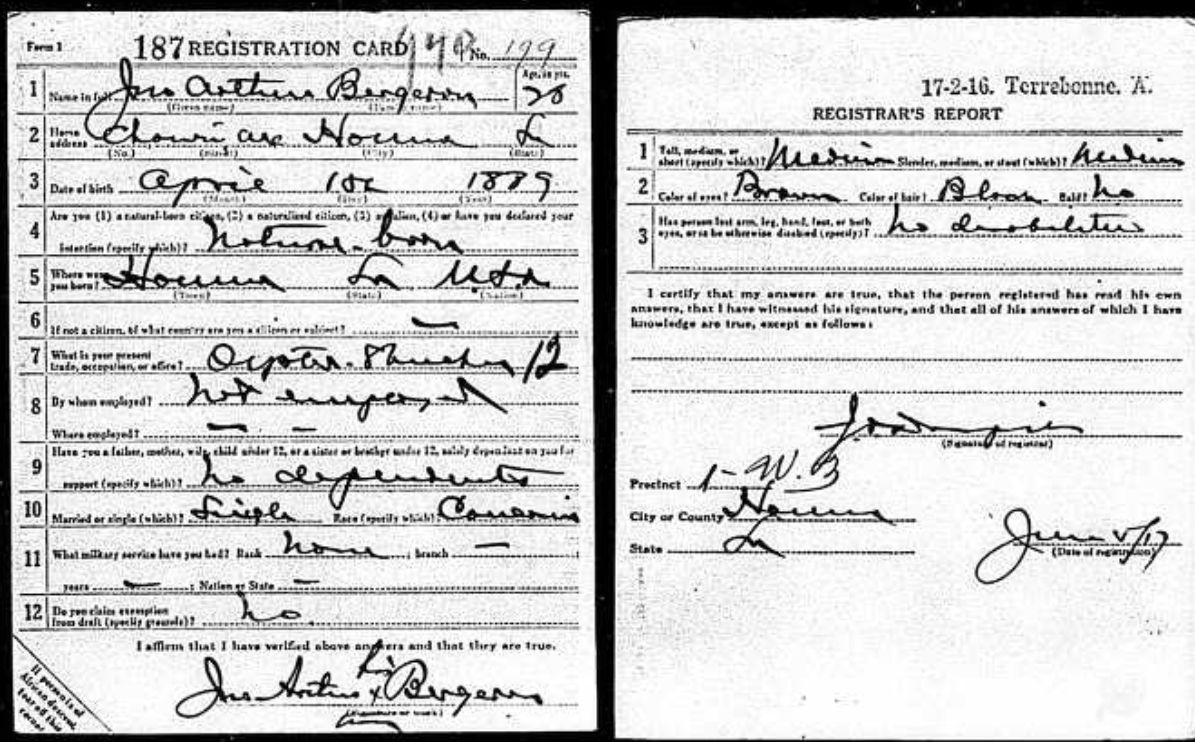 Form 1
187 REGISTRATION CARD No. 199
1 Name in full Jno Arthur Bergeron Age, in yrs. 28
(Given name) (Family name)
2 Home address Houma La
(No.) (Street) (City) (State)
3 Date of birth April 1889
(Month) (Day) (Year)
4 Are you (1) a natural-born citizen, (2) a naturalized citizen, (3) an alien, (4) or have you declared your
intention (specify which)? Nature-born
5 Where were you born? Houma La U.S.A
(Town) (State) (Nation)
6 If not a citizen, of what country are you a citizen or subject? —
7 What is your present trade, occupation, or office? Oyster 12
8 By whom employed? Not
Where employed? — —
9 Have you a father, mother, wife, child under 12, or a sister or brother under 12, solely dependent on you for
support (specify which)? No dependents
10 Married or single (which)? Single Race (specify which)?
11 What military service have you had? Rank None ; branch —
years — ; Nation or State —
12 Do you claim exemption from draft (specify grounds)? No.
I affirm that I have verified above answers and that they are true.
his
Jno Arthur x Bergeron
(Signature or mark)
If person is of
African descent,
tear off this
corner
17-2-16. Terrebonne. A.
REGISTRAR'S REPORT
1 Tall, medium, or short (specify which)? Medium Slender, medium, or stout (which)? Medium
2 Color of eyes? Brown Color of hair? Bald? No
3 Has person lost arm, leg, hand, foot, or both
eyes, or is he otherwise disabled (specify)? No disabilities
I certify that my answers are true, that the person registered has read his own
answers, that I have witnessed his signature, and that all of his answers of which I have
knowledge are true, except as follows:
(Signature of registrar)
Precinct 1- W. 3
City or County Houma
State La
June 5/17
(Date of registration)